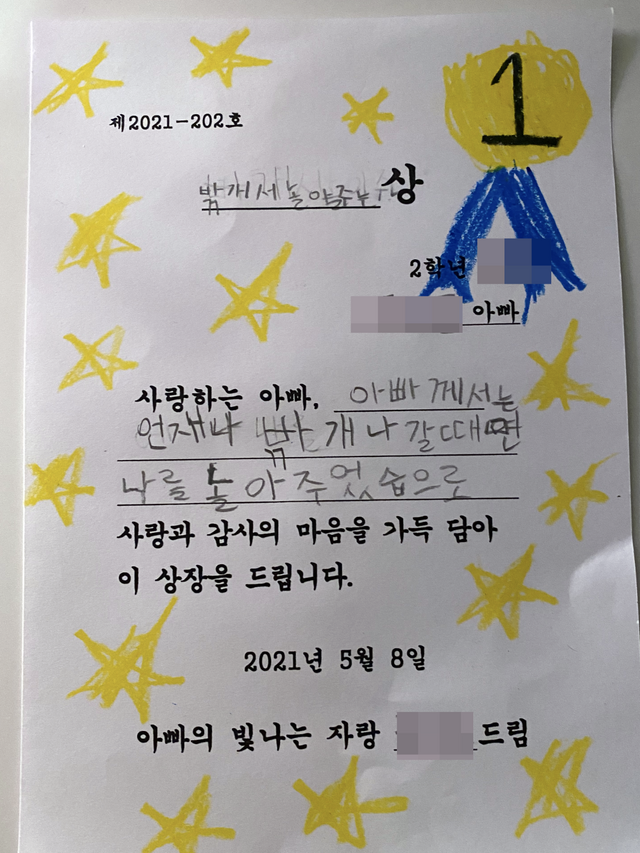 1
제2021-202호
밖개서놀아주는상
2학년
아빠
사랑하는 아빠, 아빠께서는
언재나 밖개나갈때면
나를 놀아 주었습으로
사랑과 감사의 마음을 가득 담아
이 상장을 드립니다.
2021년 5월 8일
아빠의 빛나는 자랑 드림